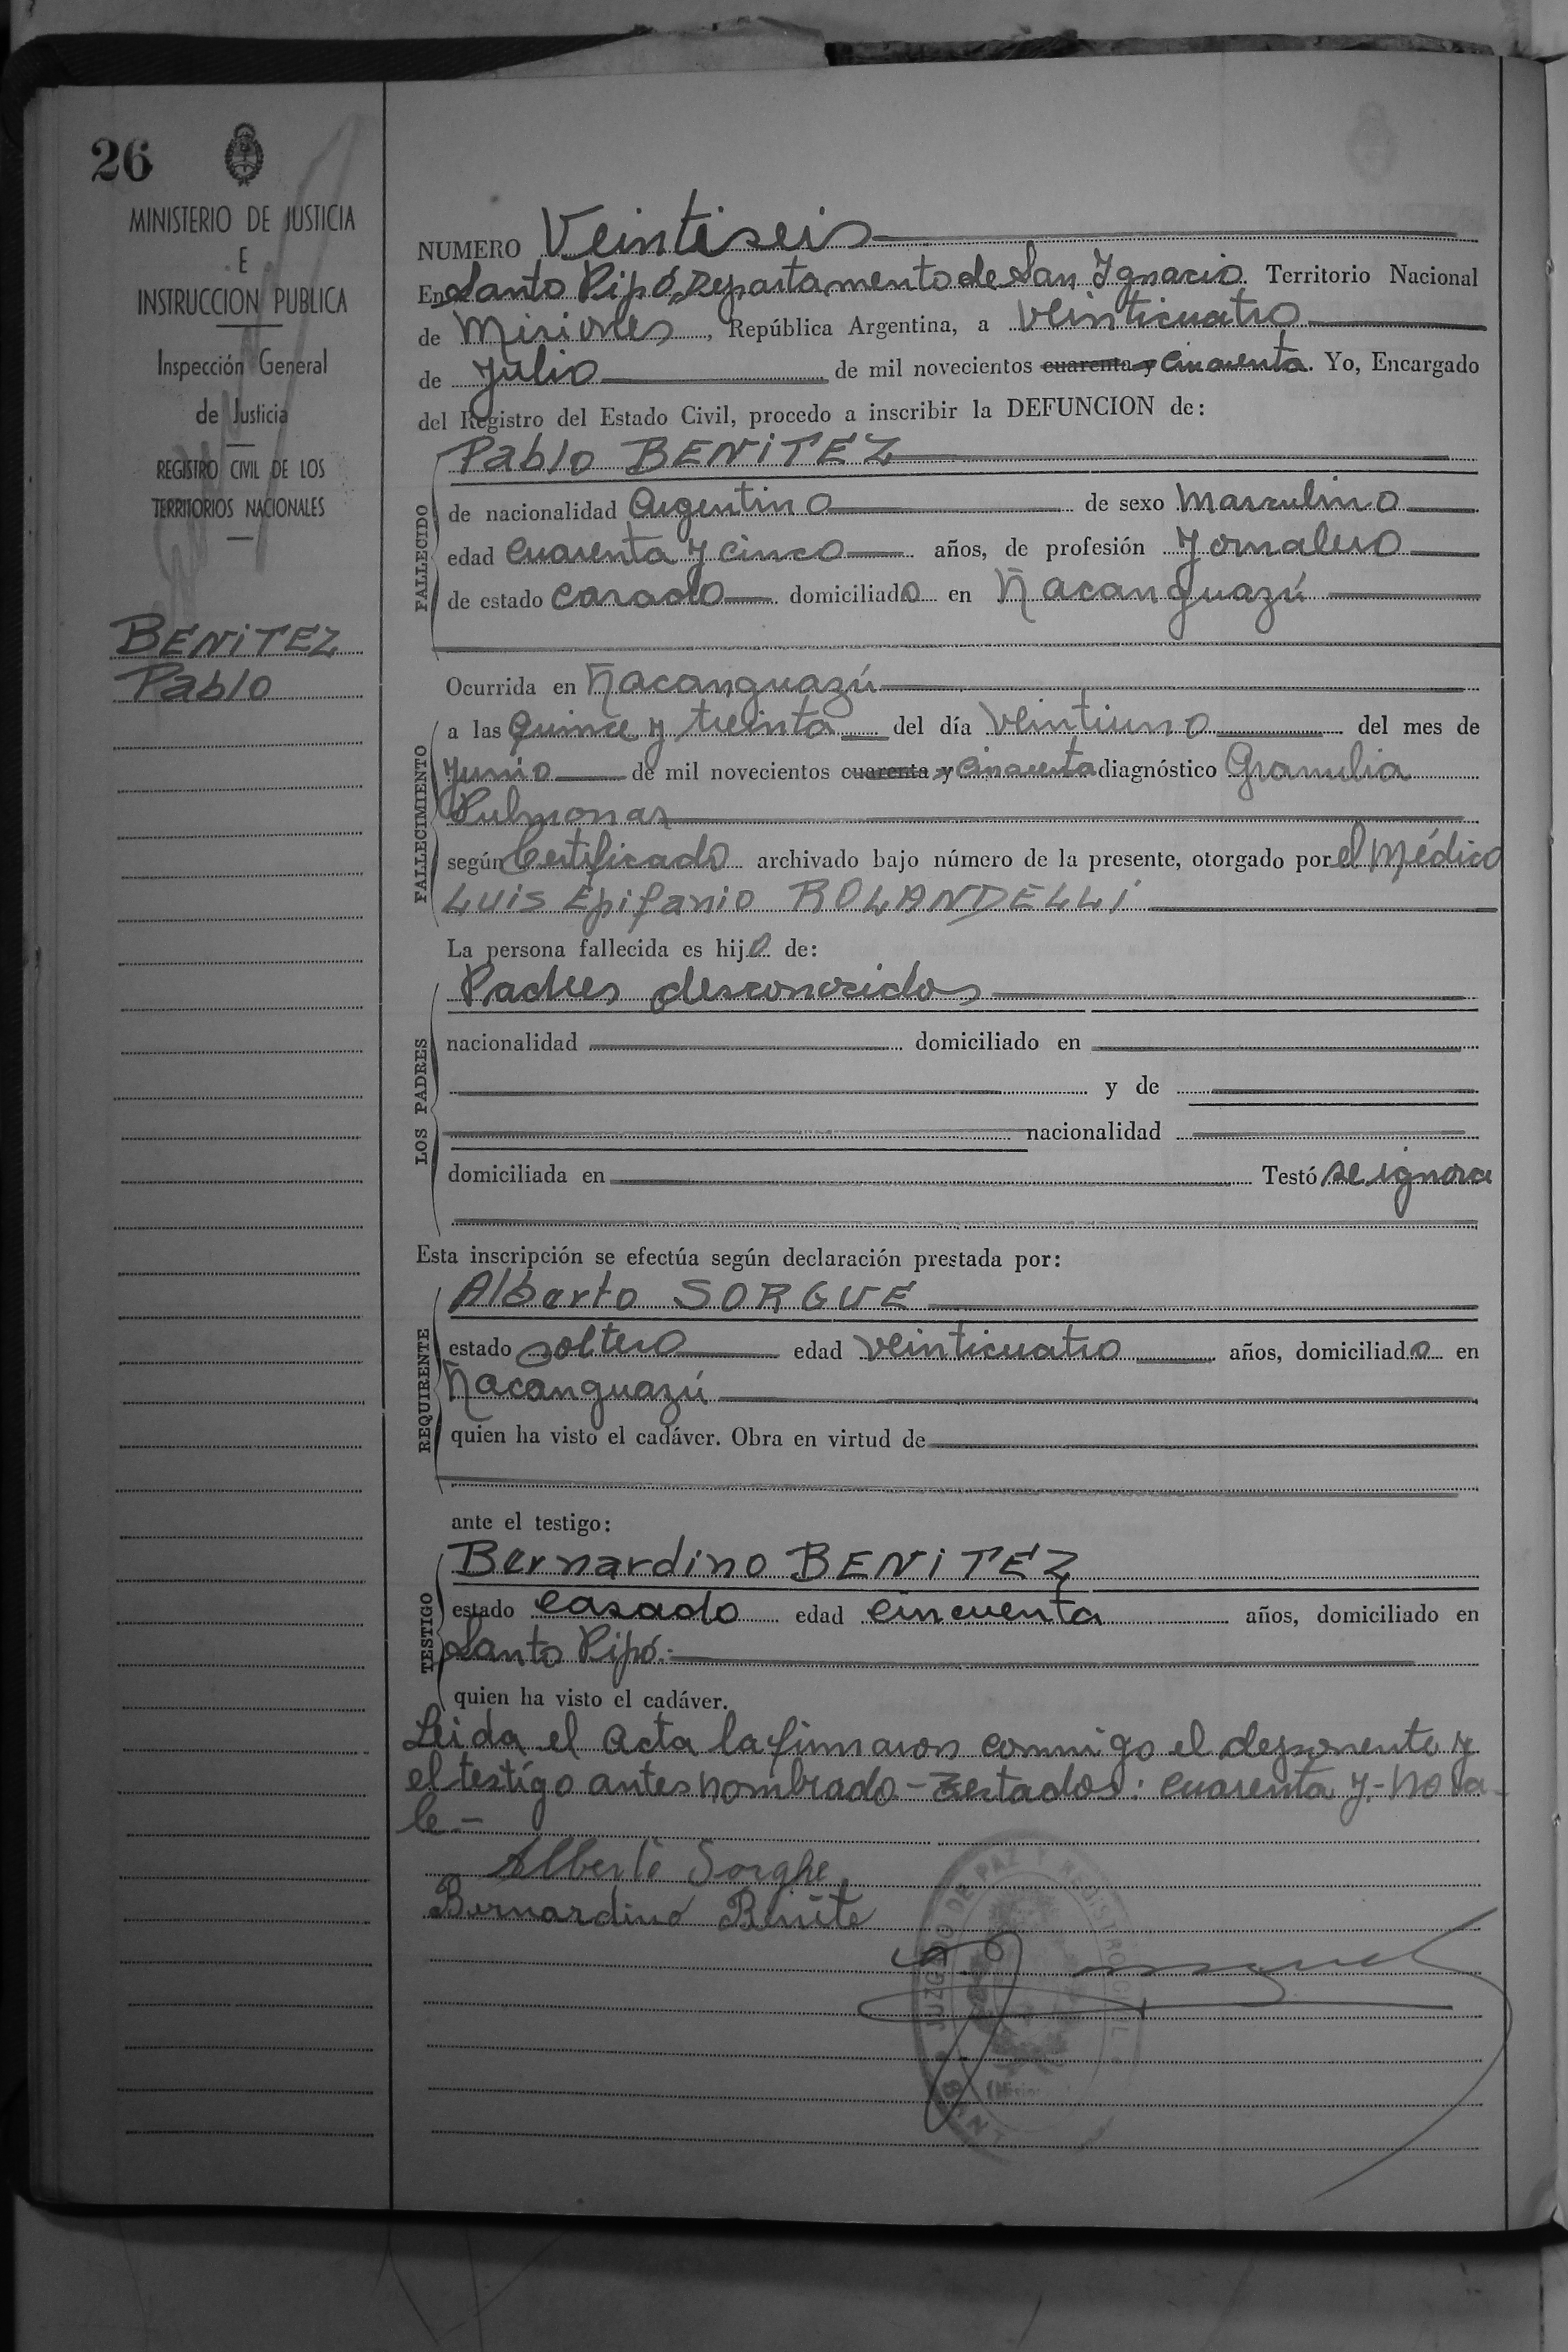 26
MINISTERIO DE JUSTICIA
E
INSTRUCCION PUBLICA
Inspección General
de Justicia
REGISTRO CIVIL DE LOS
TERRITORIOS NACIONALES
BENITEZ
Pablo
NUMERO Veintiseis
En Santo Pipó, Departamento de San Ygnacio Territorio Nacional
de Misiones, República Argentina, a veinticuatro
de Julio de mil novecientos cuarenta y cincuenta. Yo, Encargado
del Registro del Estado Civil, procedo a inscribir la DEFUNCION de:
FALLECIDO
Pablo BENITEZ
de nacionalidad Argentino de sexo Masculino
edad cuarenta y cinco años, de profesión Jornalero
de estado casado domiciliado en Ñacanguazú
Ocurrida en Ñacanguazú
FALLECIMIENTO
a las quince y treinta del día veintiuno del mes de
Junio de mil novecientos cuarenta y cincuenta diagnóstico Granulia
Pulmonar
según Certificado archivado bajo número de la presente, otorgado por el Médico
Luis Epifanio ROLANDELLI
La persona fallecida es hijo de:
LOS PADRES
Padres desconocidos
nacionalidad domiciliado en
y de
nacionalidad
domiciliada en Testó se ignora
Esta inscripción se efectúa según declaración prestada por:
REQUIRENTE
Alberto SORGUE
estado soltero edad veinticuatro años, domiciliado en
Ñacanguazú
quien ha visto el cadáver. Obra en virtud de
ante el testigo:
TESTIGO
Bernardino BENITEZ
estado casado edad cincuenta años, domiciliado en
Santo Pipó.-
quien ha visto el cadáver.
Leida el acta la firmaron conmigo el deponente y
el testigo antes nombrado - Testados: cuarenta y - No va-
le.-
Alberto Sorghe
Bernardino Benite
JUZGADO DE PAZ Y REGISTRO CIVIL